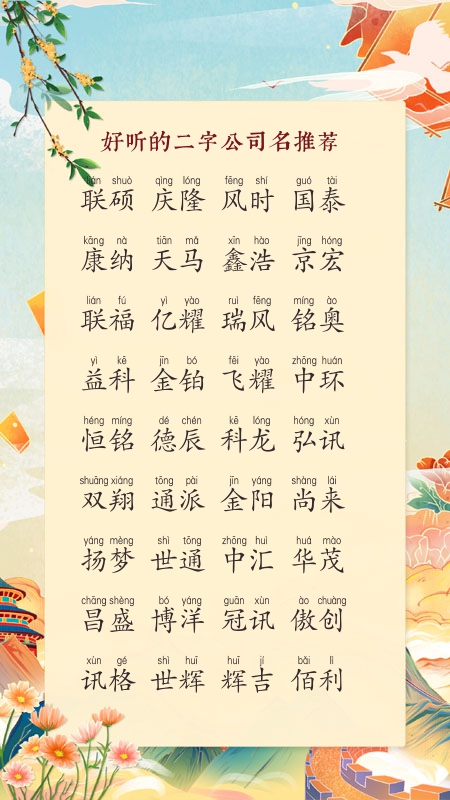 好听的二字公司名推荐
lián shuò qìng lóng fēng shí guó tài
联硕 庆隆 风时 国泰
kāng nà tiān mǎ xīn hào jīng hóng
康纳 天马 鑫浩 京宏
lián fú yì yào ruì fēng míng ào
联福 亿耀 瑞风 铭奥
yì kē jīn bó fēi yào zhōng huán
益科 金铂 飞耀 中环
héng míng dé chén kē lóng hóng xùn
恒铭 德辰 科龙 弘讯
shuāng xiáng tōng pài jīn yáng shàng lái
双翔 通派 金阳 尚来
yáng mèng shì tōng zhōng huì huá mào
扬梦 世通 中汇 华茂
chāng shèng bó yáng guān xùn ào chuàng
昌盛 博洋 冠讯 傲创
xùn gé shì huī huī jí bǎi lì
讯格 世辉 辉吉 佰利